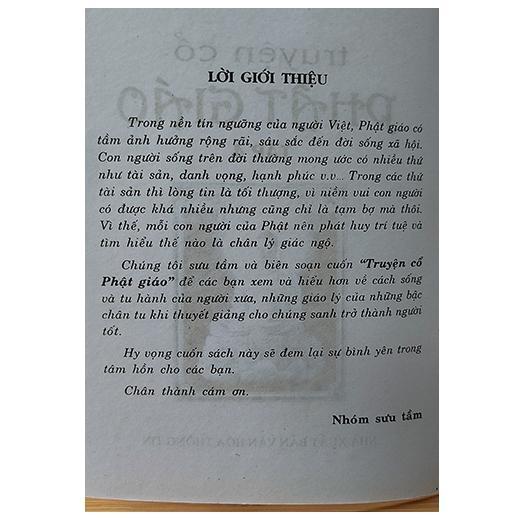 LỜI GIỚI THIỆU
Trong nền tín ngưỡng của người Việt, Phật giáo có
tầm ảnh hưởng rộng rãi, sâu sắc đến đời sống xã hội.
Con người sống trên đời thường mong ước có nhiều thứ
như tài sản, danh vọng, hạnh phúc v.v... Trong các thứ
tài sản thì lòng tin là tối thượng, vì niềm vui con người
có được khá nhiều nhưng cũng chỉ là tạm bợ mà thôi.
Vì thế, mỗi con người của Phật nên phát huy trí tuệ và
tìm hiểu thế nào là chân lý giác ngộ.
Chúng tôi sưu tầm và biên soạn cuốn “Truyện cổ
Phật giáo” để các bạn xem và hiểu hơn về cách sống
và tu hành của người xưa, những giáo lý của những bậc
chân tu khi thuyết giảng cho chúng sanh trở thành người
tốt.
Hy vọng cuốn sách này sẽ đem lại sự bình yên trong
tâm hồn cho các bạn.
Chân thành cám ơn.
Nhóm sưu tầm